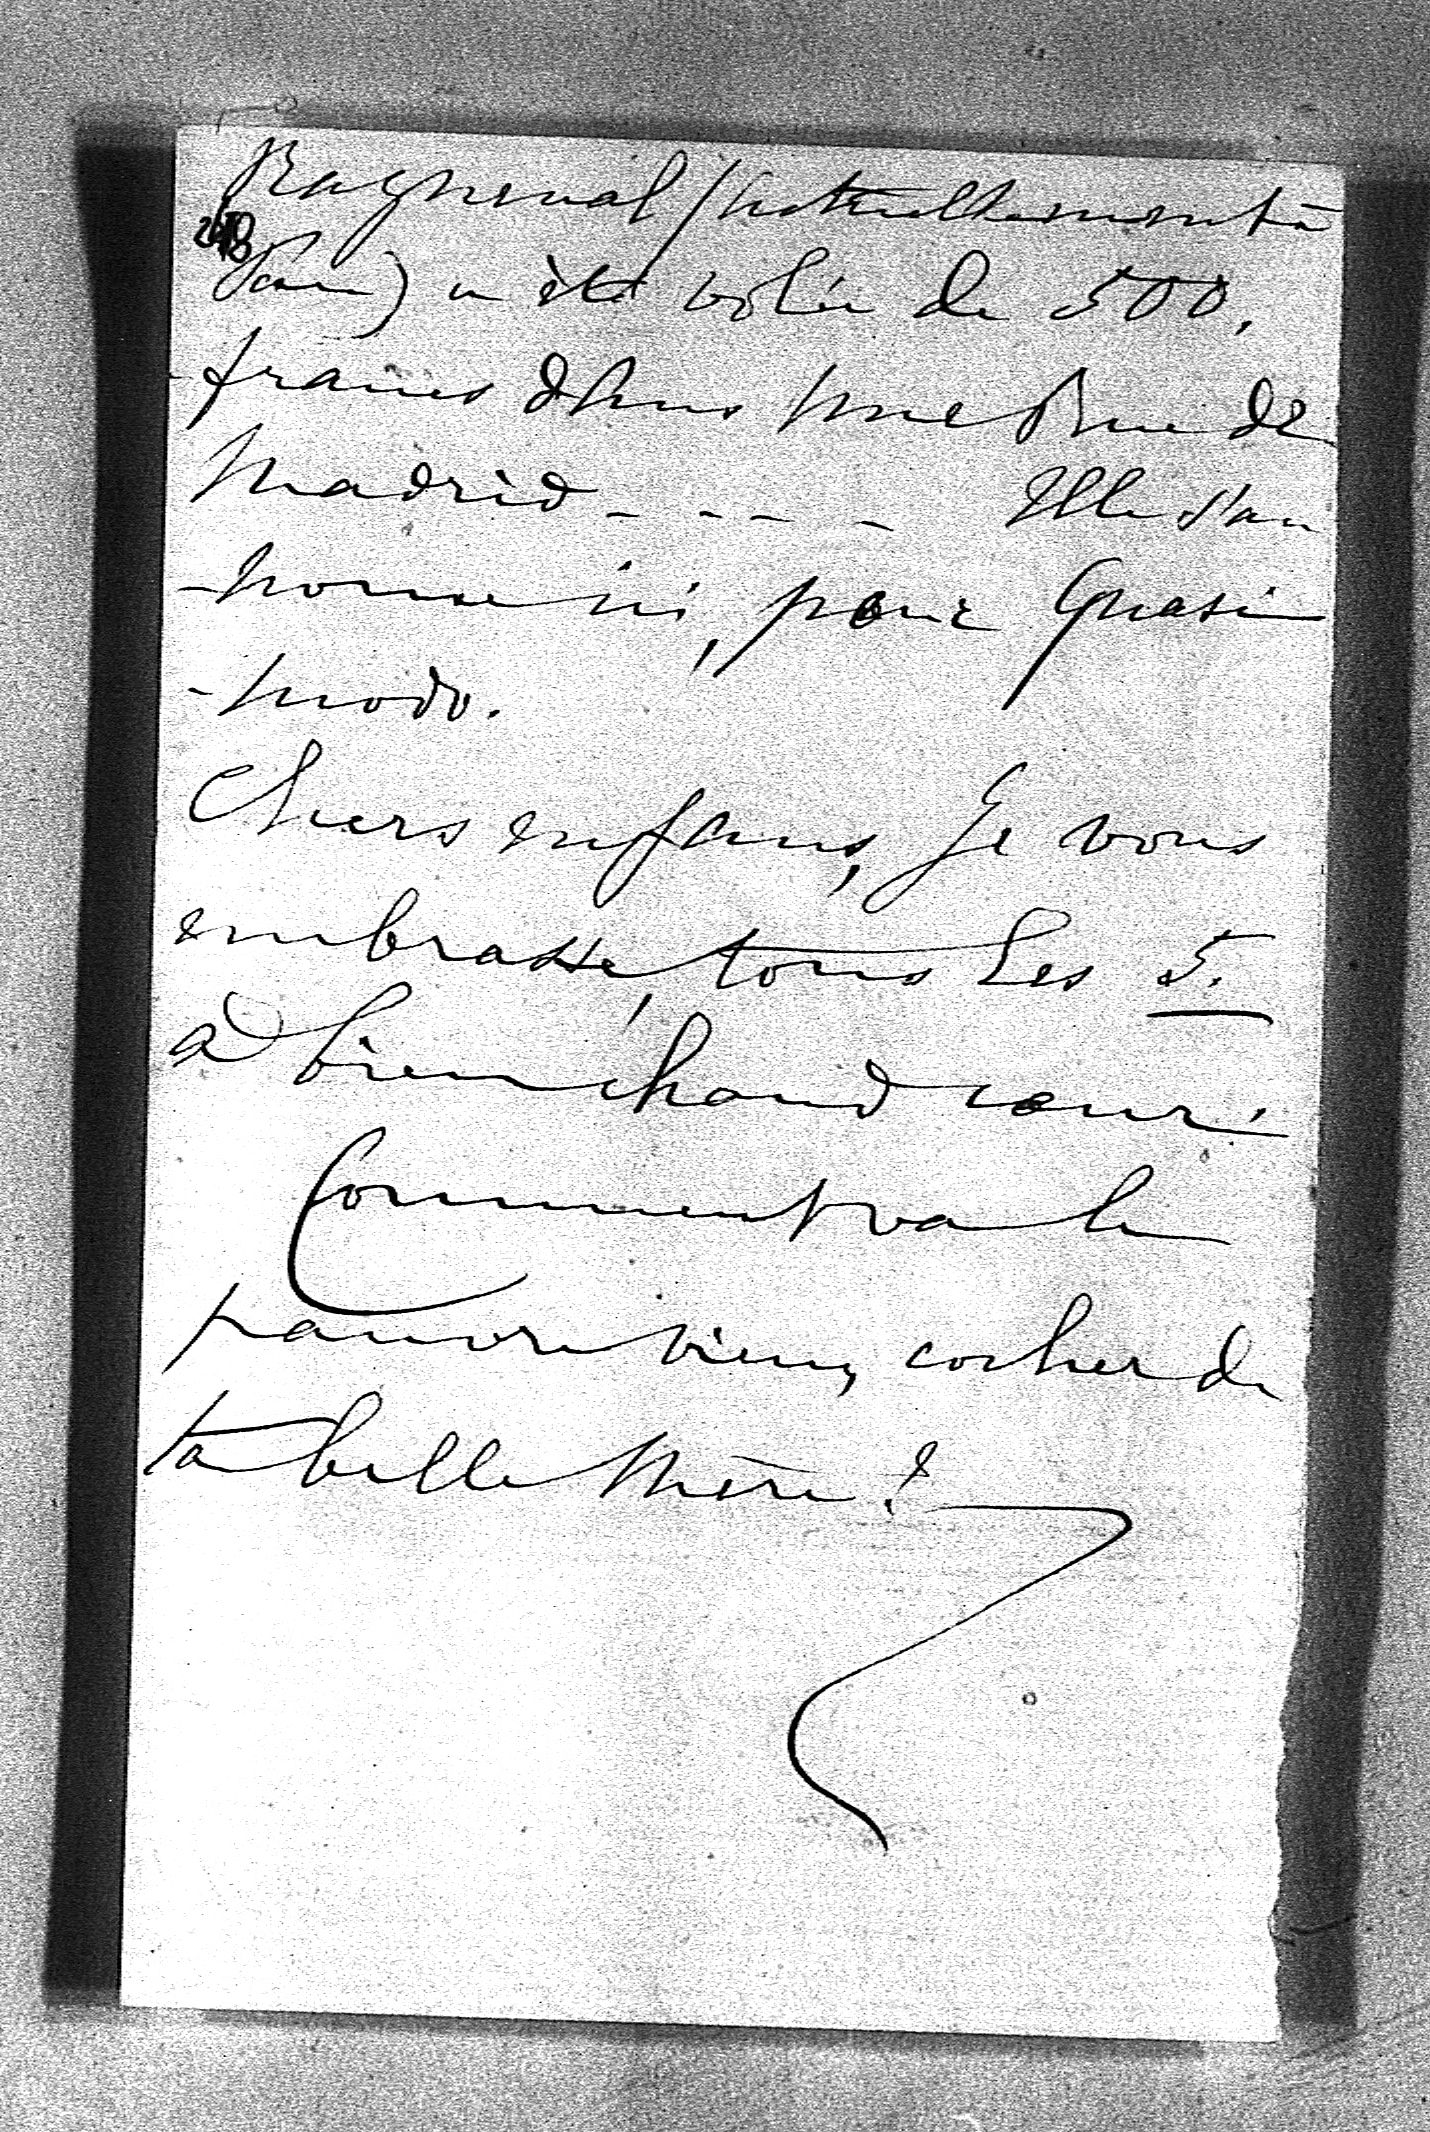 Rayneval (actuellement à
Pau) a été volée de 500.
francs dans une Rue de
Madrid - - - - Elle s'an
-nonce ici, pour Quasi
-modo.
Chers enfans, Je vous
embrasse, tous les 5.
à bien chaud cœur.
Comment va le
pauvre vieux cocher de
ta belle Mère ?